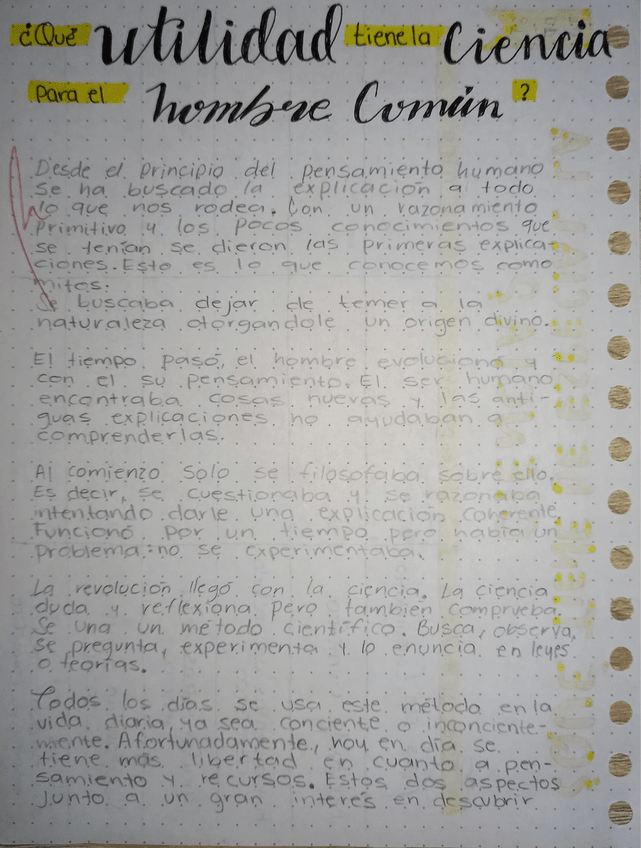 ¿Qué utilidad tiene la Ciencia
para el hombre Común?
Desde el principio del pensamiento humano
se ha buscado la explicación a todo
lo que nos rodea. Con un razonamiento
primitivo y los pocos conocimientos que
se tenían se dieron las primeras explica-
ciones. Esto es lo que conocemos como
mitos.
Se buscaba dejar de temer a la
naturaleza otorgandole un origen divino.
El tiempo pasó, el hombre evolucionó y
con el su pensamiento. El ser humano
encontraba cosas nuevas y las anti-
guas explicaciones no ayudaban a
comprenderlas.
Al comienzo solo se filosofaba sobre ello.
Es decir, se cuestionaba y se razonaba
intentando darle una explicación coherente.
Funcionó por un tiempo pero había un
problema: no se experimentaba.
La revolución llegó con la ciencia. La ciencia
duda y reflexiona pero también comprueba.
Se una un método científico. Busca, observa,
se pregunta, experimenta y lo enuncia en leyes
o teorías.
Todos los días se usa este método en la
vida diaria, ya sea conciente o inconciente-
mente. Afortunadamente, hoy en día se
tiene más libertad en cuanto a pen-
samiento y recursos. Estos dos aspectos
junto a un gran interés en descubrir